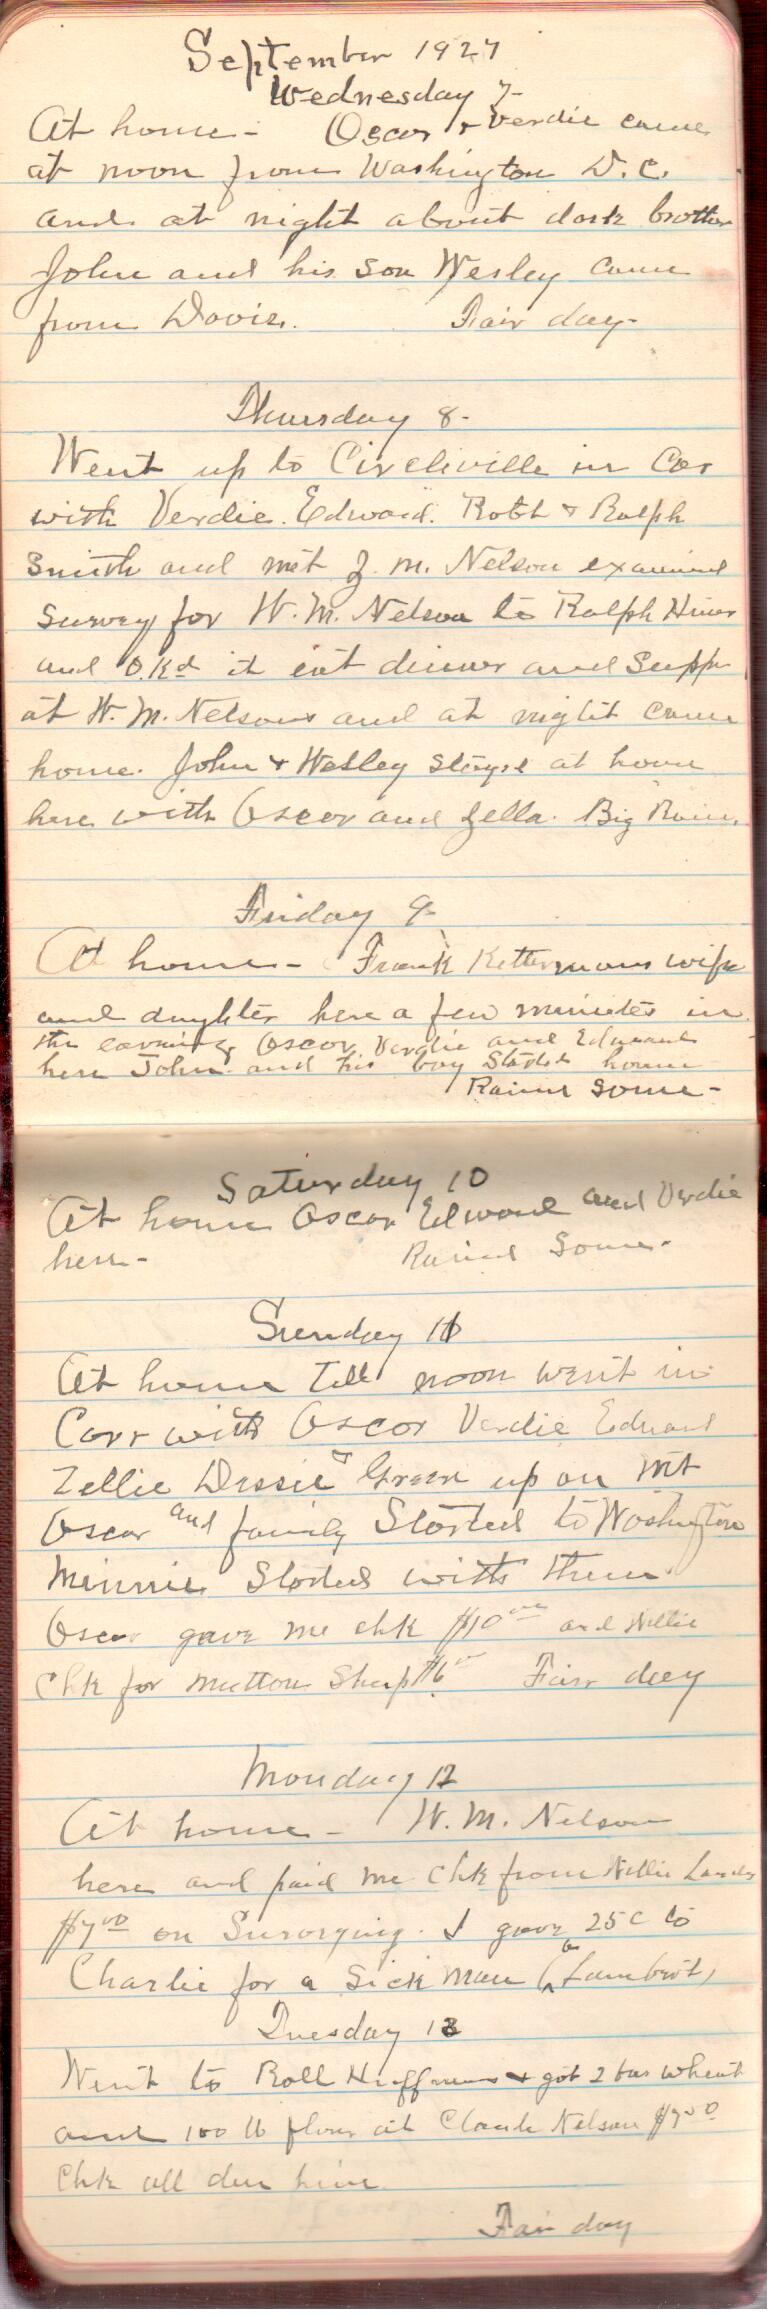 September 1927
Wednesday 7-
At home - Oscar & Verdie came
at noon from Washington D.C.
and at night about dark brother
John and his son Wesley came
from Davis. Fair day-
Thursday 8-
Went up to Circleville in Car
with Verdie. Edward. Robt & Ralph
Smith and met Z. M. Nelson examined
survey for W. M. Nelson to Ralph Hiner
and O.Kd it eat dinner and Supper
at W. M. Nelsons and at night came
home. John & Wesley stayed at home
here with Oscar and Zella. Big Rain.
Friday 9-
At home - Frank Kettermans wife
and daughter here a few minutes in
the evening Oscar Verdie and Edward
here John and his boy Started home
Rained some-
Saturday 10
At home Oscar Edward and Verdie
here- Rained Some-
Sunday 11
At home Till noon went in
Carr with Oscar Verdie Edward
Zellie Dessie & Green up on Mt
Oscar and family Started to Washington
Minnie Started with them
Oscar gave me chk $10 and Nellie
Chk for mutton Sheep $6 Fair day
Monday 12
At home - W. M. Nelson
here and paid me Chk from Nellie
$7 00 on Surveying. I gave 25 c to
Charlie for a Sick man ( Lambert)
Tuesday 13
Went to Roll Huffmans & got 2 bus wheat
and 100 lb flour at Claude Nelson $7 00
Chk all due him
Fair day